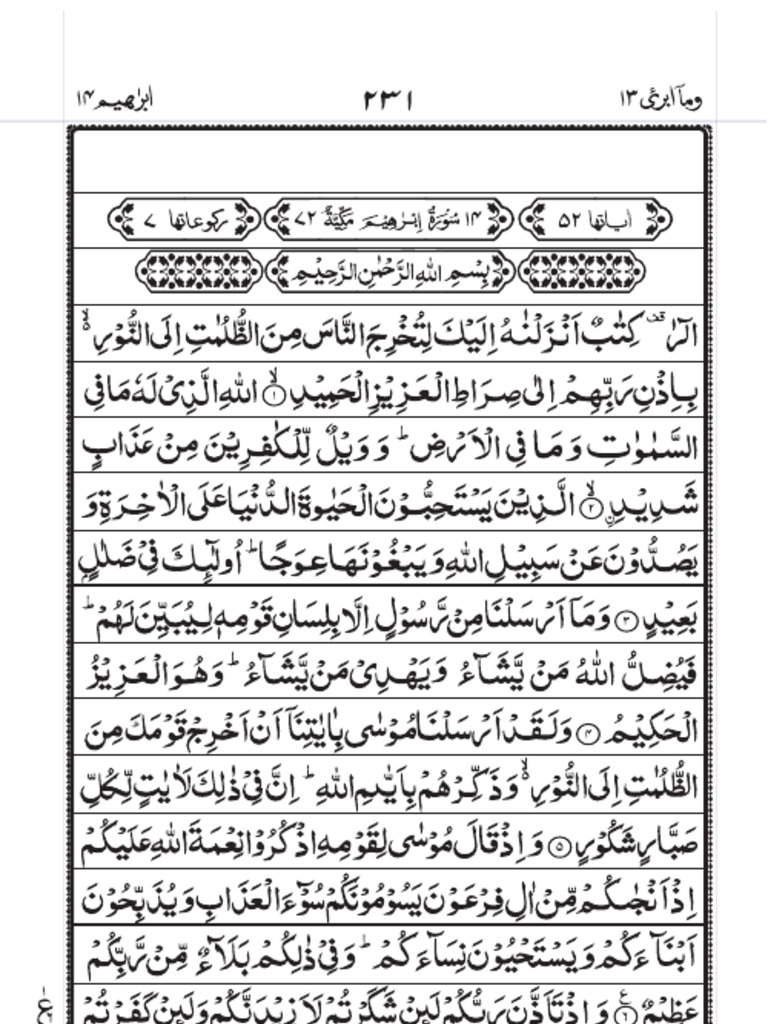 وماۤ ابرئ ۱۳ ۲۳۱ ابرٰھیم ۱۴
اٰیاتها ۵۲ ۱۴ سُوْرَةُ اِبْرٰهِيْمَ مَكِّيَّةٌ ۷۲ ركوعاتها ۷
بِسْمِ اللهِ الرَّحْمٰنِ الرَّحِيْمِ
الٓرٰ ۟ قف كِتٰبٌ اَنْزَلْنٰهُ اِلَيْكَ لِتُخْرِجَ النَّاسَ مِنَ الظُّلُمٰتِ اِلَى النُّوْرِ ۙ۬
بِاِذْنِ رَبِّهِمْ اِلٰى صِرَاطِ الْعَزِيْزِ الْحَمِيْدِ ۙ﴿۱﴾ اللهِ الَّذِيْ لَهٗ مَا فِي
السَّمٰوٰتِ وَ مَا فِي الْاَرْضِ ؕ وَ وَيْلٌ لِّلْكٰفِرِيْنَ مِنْ عَذَابٍ
شَدِيْدِ ۟ۙ﴿۲﴾ الَّذِيْنَ يَسْتَحِبُّوْنَ الْحَيٰوةَ الدُّنْيَا عَلَى الْاٰخِرَةِ وَ
يَصُدُّوْنَ عَنْ سَبِيْلِ اللهِ وَ يَبْغُوْنَهَا عِوَجًا ؕ اُولٰٓئِكَ فِيْ ضَلٰلٍۭ
بَعِيْدٍ ﴿۳﴾ وَ مَاۤ اَرْسَلْنَا مِنْ رَّسُوْلٍ اِلَّا بِلِسَانِ قَوْمِهٖ لِيُبَيِّنَ لَهُمْ ؕ
فَيُضِلُّ اللهُ مَنْ يَّشَآءُ وَ يَهْدِيْ مَنْ يَّشَآءُ ؕ وَ هُوَ الْعَزِيْزُ
الْحَكِيْمُ ﴿۴﴾ وَ لَقَدْ اَرْسَلْنَا مُوْسٰى بِاٰيٰتِنَاۤ اَنْ اَخْرِجْ قَوْمَكَ مِنَ
الظُّلُمٰتِ اِلَى النُّوْرِ ۙ۬ وَ ذَكِّرْهُمْ بِاَيّٰىمِ اللهِ ؕ اِنَّ فِيْ ذٰلِكَ لَاٰيٰتٍ لِّكُلِّ
صَبَّارٍ شَكُوْرٍ ﴿۵﴾ وَ اِذْ قَالَ مُوْسٰى لِقَوْمِهِ اذْكُرُوْا نِعْمَةَ اللهِ عَلَيْكُمْ
اِذْ اَنْجٰىكُمْ مِّنْ اٰلِ فِرْعَوْنَ يَسُوْمُوْنَكُمْ سُوْٓءَ الْعَذَابِ وَ يُذَبِّحُوْنَ
اَبْنَآءَكُمْ وَ يَسْتَحْيُوْنَ نِسَآءَكُمْ ؕ وَ فِيْ ذٰلِكُمْ بَلَآءٌ مِّنْ رَّبِّكُمْ
عَظِيْمٌ ﴿۶﴾ع وَ اِذْ تَاَذَّنَ رَبُّكُمْ لَئِنْ شَكَرْتُمْ لَاَزِيْدَنَّكُمْ وَ لَئِنْ كَفَرْتُمْ